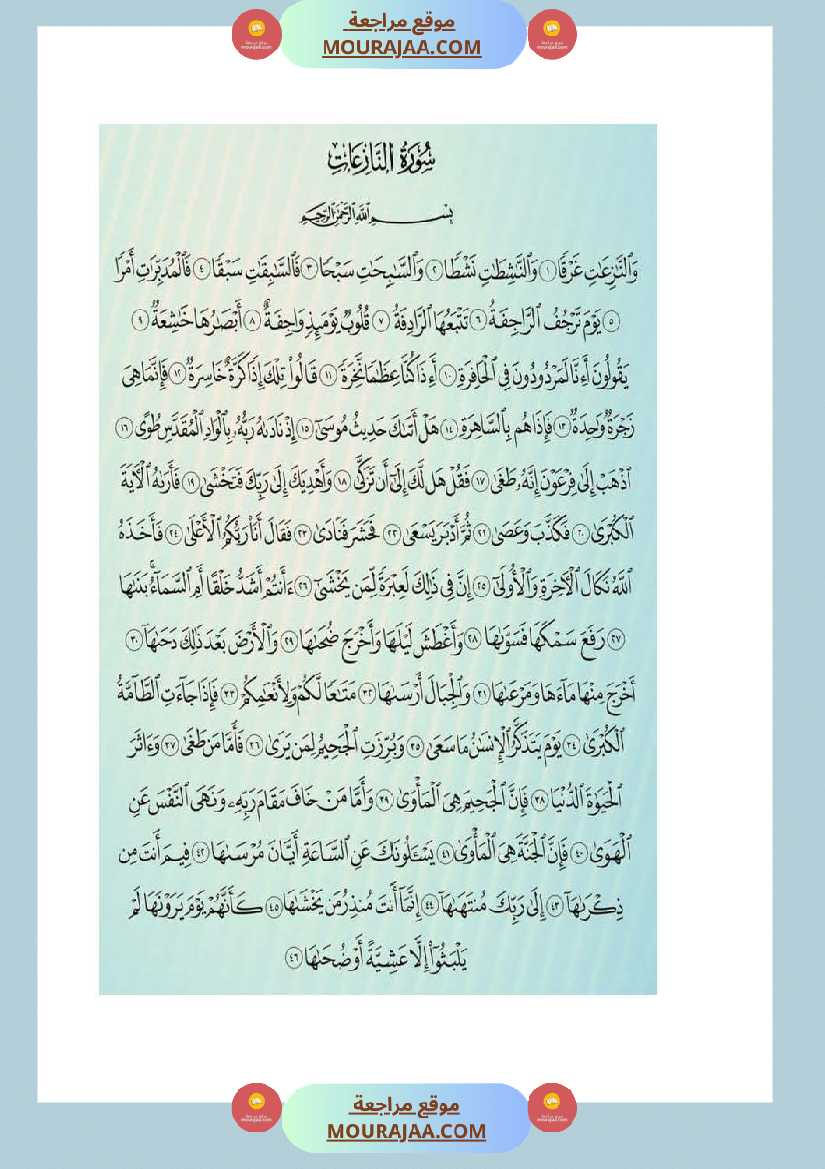 موقع مراجعة
MOURAJAA.COM
سُورَةُ النَّازِعَاتِ
بِسْمِ اللَّهِ الرَّحْمَٰنِ الرَّحِيمِ
وَٱلنَّٰزِعَٰتِ غَرْقًا ١ وَٱلنَّٰشِطَٰتِ نَشْطًا ٢ وَٱلسَّٰبِحَٰتِ سَبْحًا ٣ فَٱلسَّٰبِقَٰتِ سَبْقًا ٤ فَٱلْمُدَبِّرَٰتِ أَمْرًا
٥ يَوْمَ تَرْجُفُ ٱلرَّاجِفَةُ ٦ تَتْبَعُهَا ٱلرَّادِفَةُ ٧ قُلُوبٌ يَوْمَئِذٍ وَاجِفَةٌ ٨ أَبْصَٰرُهَا خَٰشِعَةٌ ٩
يَقُولُونَ أَءِنَّا لَمَرْدُودُونَ فِى ٱلْحَافِرَةِ ١٠ أَءِذَا كُنَّا عِظَٰمًا نَّخِرَةً ١١ قَالُوا۟ تِلْكَ إِذًا كَرَّةٌ خَاسِرَةٌ ١٢ فَإِنَّمَا هِىَ
زَجْرَةٌ وَٰحِدَةٌ ١٣ فَإِذَا هُم بِٱلسَّاهِرَةِ ١٤ هَلْ أَتَىٰكَ حَدِيثُ مُوسَىٰٓ ١٥ إِذْ نَادَىٰهُ رَبُّهُۥ بِٱلْوَادِ ٱلْمُقَدَّسِ طُوًى ١٦
ٱذْهَبْ إِلَىٰ فِرْعَوْنَ إِنَّهُۥ طَغَىٰ ١٧ فَقُلْ هَل لَّكَ إِلَىٰٓ أَن تَزَكَّىٰ ١٨ وَأَهْدِيَكَ إِلَىٰ رَبِّكَ فَتَخْشَىٰ ١٩ فَأَرَىٰهُ ٱلْءَايَةَ
ٱلْكُبْرَىٰ ٢٠ فَكَذَّبَ وَعَصَىٰ ٢١ ثُمَّ أَدْبَرَ يَسْعَىٰ ٢٢ فَحَشَرَ فَنَادَىٰ ٢٣ فَقَالَ أَنَا۠ رَبُّكُمُ ٱلْأَعْلَىٰ ٢٤ فَأَخَذَهُ
ٱللَّهُ نَكَالَ ٱلْءَاخِرَةِ وَٱلْأُولَىٰٓ ٢٥ إِنَّ فِى ذَٰلِكَ لَعِبْرَةً لِّمَن يَخْشَىٰٓ ٢٦ ءَأَنتُمْ أَشَدُّ خَلْقًا أَمِ ٱلسَّمَآءُ ۚ بَنَىٰهَا
٢٧ رَفَعَ سَمْكَهَا فَسَوَّىٰهَا ٢٨ وَأَغْطَشَ لَيْلَهَا وَأَخْرَجَ ضُحَىٰهَا ٢٩ وَٱلْأَرْضَ بَعْدَ ذَٰلِكَ دَحَىٰهَآ ٣٠
أَخْرَجَ مِنْهَا مَآءَهَا وَمَرْعَىٰهَا ٣١ وَٱلْجِبَالَ أَرْسَىٰهَا ٣٢ مَتَٰعًا لَّكُمْ وَلِأَنْعَٰمِكُمْ ٣٣ فَإِذَا جَآءَتِ ٱلطَّآمَّةُ
ٱلْكُبْرَىٰ ٣٤ يَوْمَ يَتَذَكَّرُ ٱلْإِنسَٰنُ مَا سَعَىٰ ٣٥ وَبُرِّزَتِ ٱلْجَحِيمُ لِمَن يَرَىٰ ٣٦ فَأَمَّا مَن طَغَىٰ ٣٧ وَءَاثَرَ
ٱلْحَيَوٰةَ ٱلدُّنْيَا ٣٨ فَإِنَّ ٱلْجَحِيمَ هِىَ ٱلْمَأْوَىٰ ٣٩ وَأَمَّا مَنْ خَافَ مَقَامَ رَبِّهِۦ وَنَهَى ٱلنَّفْسَ عَنِ
ٱلْهَوَىٰ ٤٠ فَإِنَّ ٱلْجَنَّةَ هِىَ ٱلْمَأْوَىٰ ٤١ يَسْـَٔلُونَكَ عَنِ ٱلسَّاعَةِ أَيَّانَ مُرْسَىٰهَا ٤٢ فِيمَ أَنتَ مِن
ذِكْرَىٰهَآ ٤٣ إِلَىٰ رَبِّكَ مُنتَهَىٰهَآ ٤٤ إِنَّمَآ أَنتَ مُنذِرُ مَن يَخْشَىٰهَا ٤٥ كَأَنَّهُمْ يَوْمَ يَرَوْنَهَا لَمْ
يَلْبَثُوٓا۟ إِلَّا عَشِيَّةً أَوْ ضُحَىٰهَا ٤٦
موقع مراجعة
MOURAJAA.COM